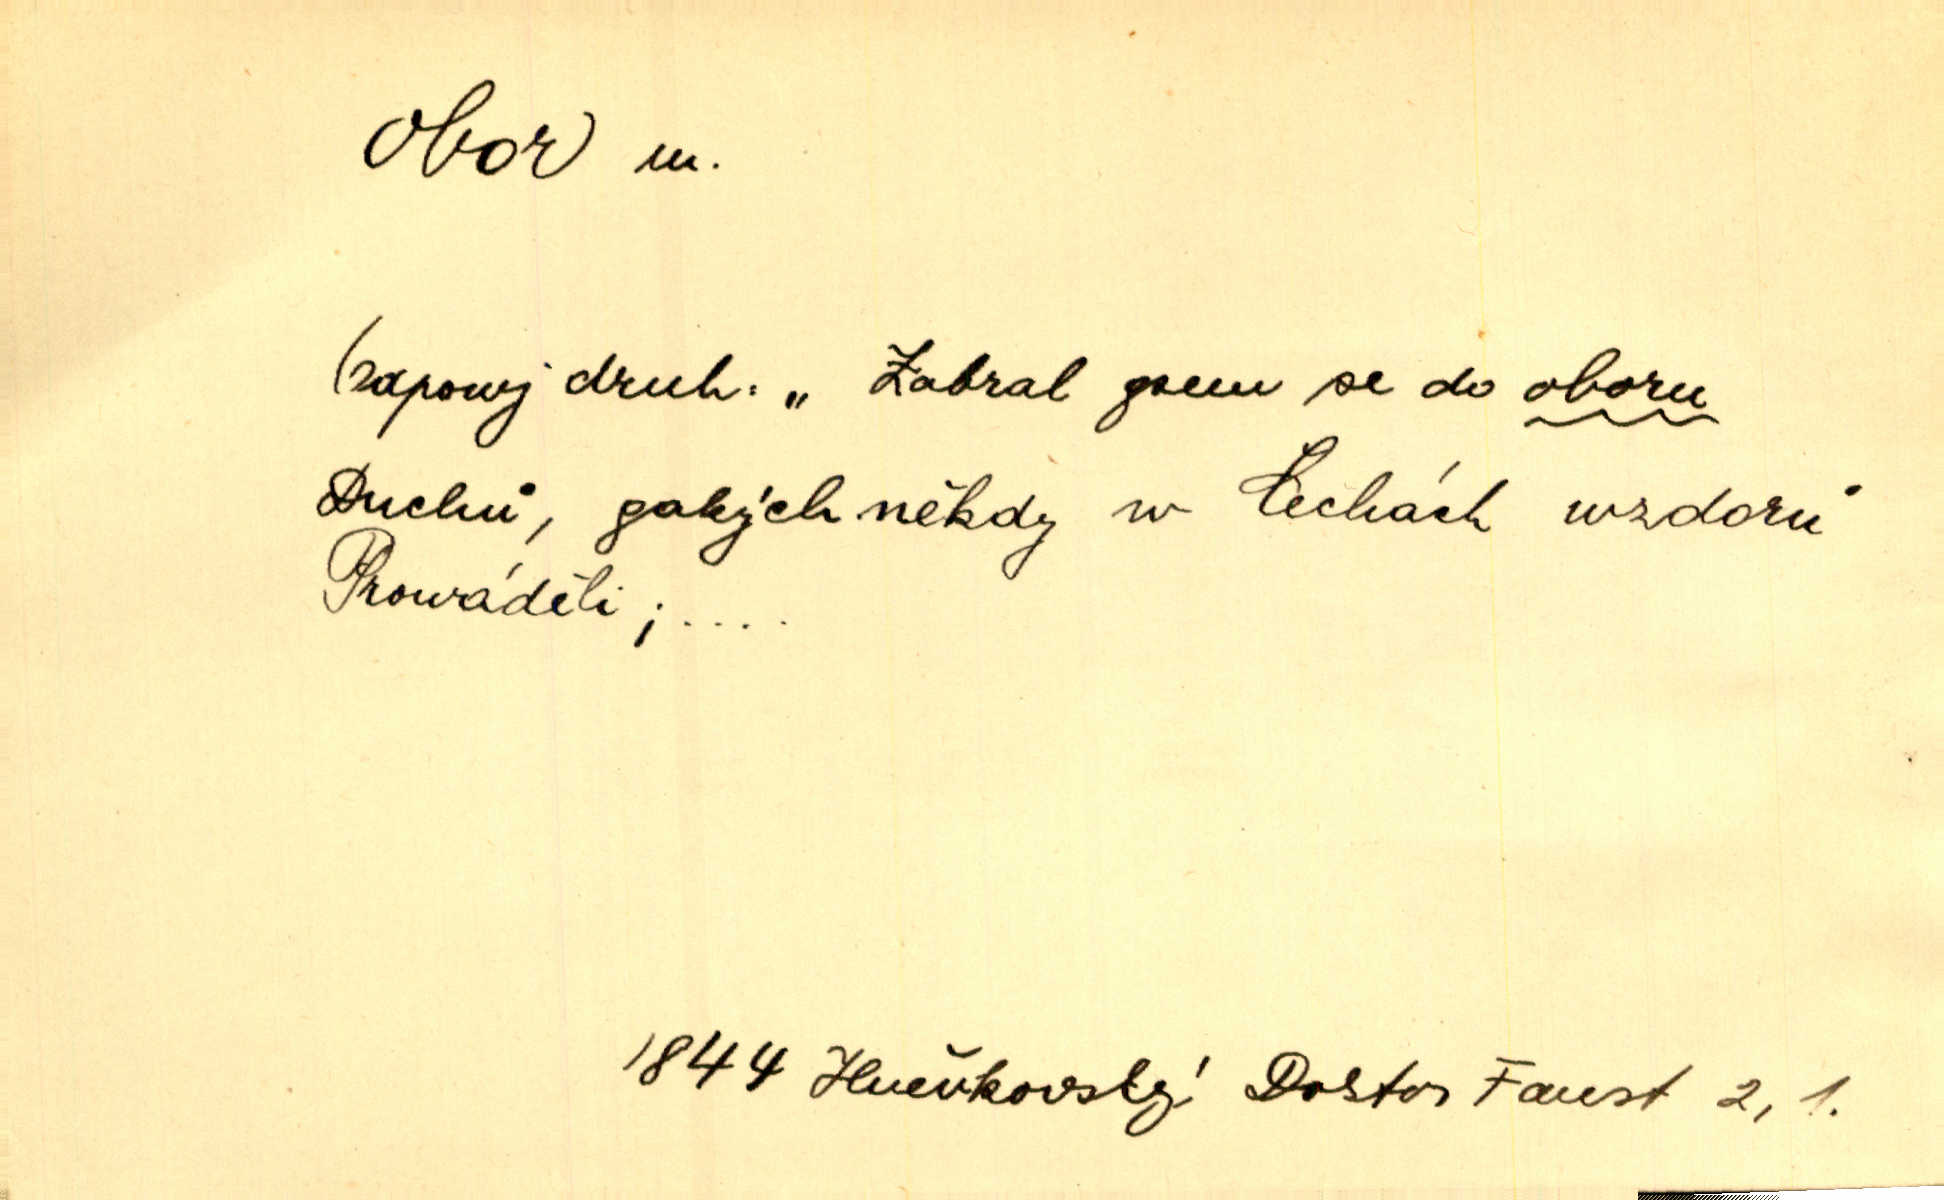 Obor m.
Žabral gsem se do oboru
Duchů, gakých někdy w Čechách wzdorů
Prowáděli; ....
1844 Hněvkovský Doktor Faust 2, 1.